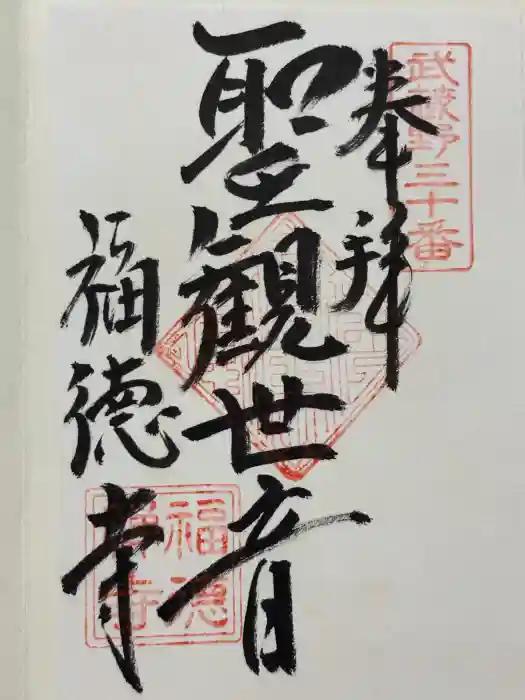 武蔵野三十番
奉拝
聖觀世音
福徳寺
福徳寺